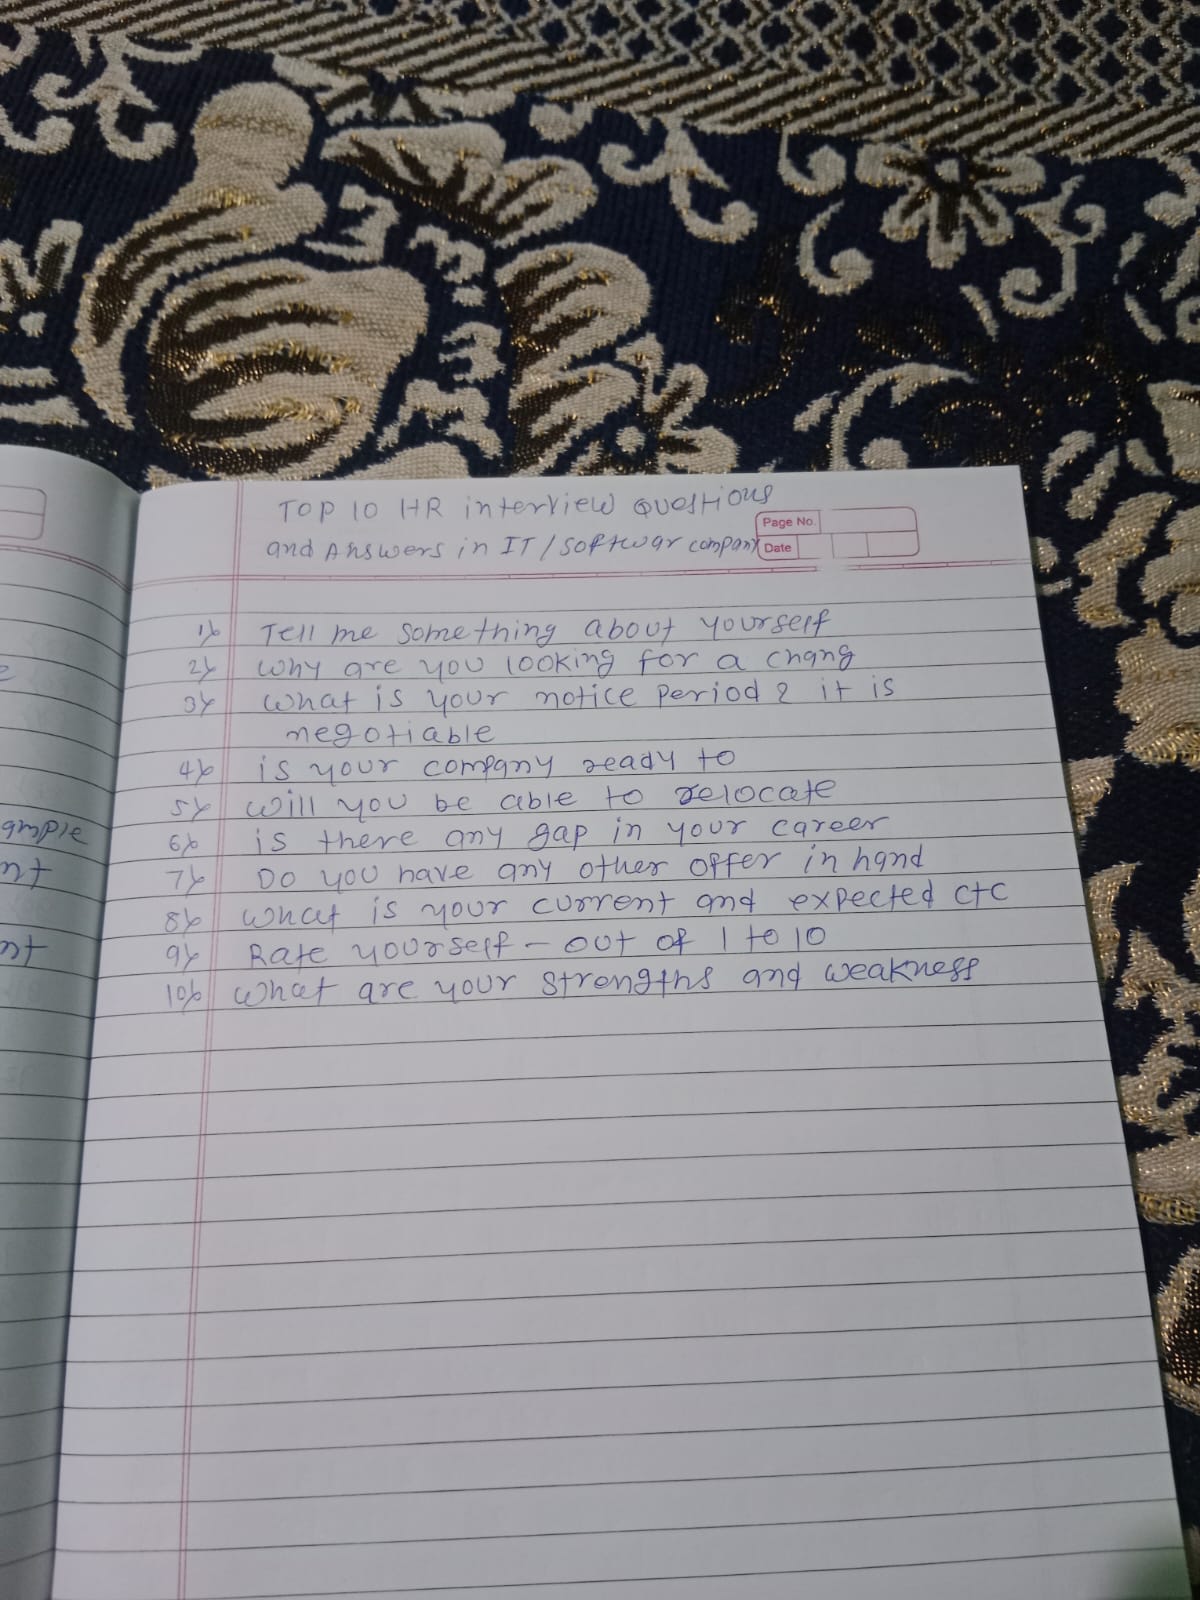 TOP 10 HR interview Questions
and Answers in IT / softwar company
Page No.
Date
1) Tell me something about yourself
2) why are you looking for a chang
3) what is your notice period ? it is
negotiable
4) is your company ready to
5) will you be able to relocate
6) is there any gap in your career
7) Do you have any other offer in hand
8) what is your current and expected ctc
9) Rate yourself - out of 1 to 10
10) what are your strengths and weakness
ample